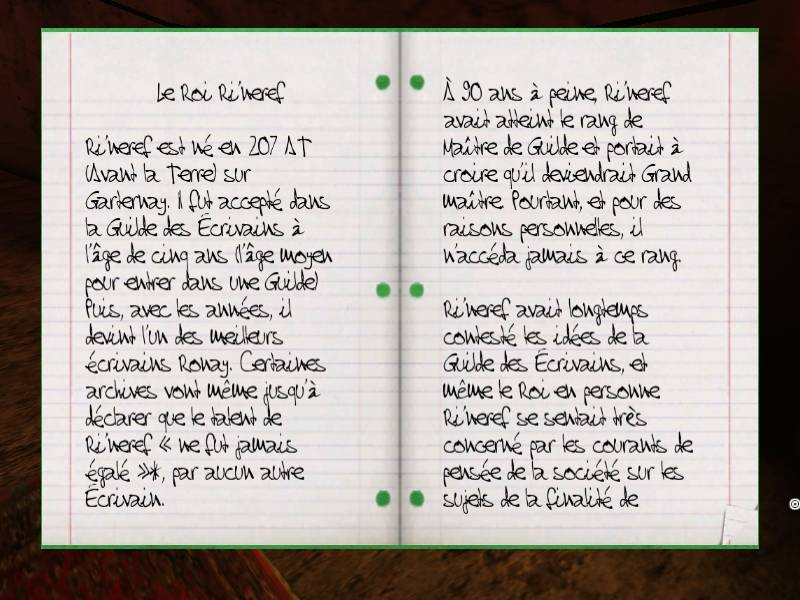 Le Roi Ri'neref
Ri'neref est né en 207 AT
(Avant la Terre) sur
Garternay. Il fut accepté dans
la Guilde des Écrivains à
l'âge de cinq ans (l'âge moyen
pour entrer dans une Guilde)
Puis, avec les années, il
devint l'un des meilleurs
écrivains Ronay. Certaines
archives vont même jusqu'à
déclarer que le talent de
Ri'neref « ne fut jamais
égalé »*, par aucun autre
Écrivain.
À 90 ans à peine, Ri'neref
avait atteint le rang de
Maître de Guilde et portait à
croire qu'il deviendrait Grand
maître Pourtant, et pour des
raisons personnelles, il
n'accéda jamais à ce rang.
Ri'neref avait longtemps
contesté les idées de la
Guilde des Écrivains, et
même le Roi en personne
Ri'neref se sentait très
concerné par les courants de
pensée de la société sur les
sujets de la finalité de